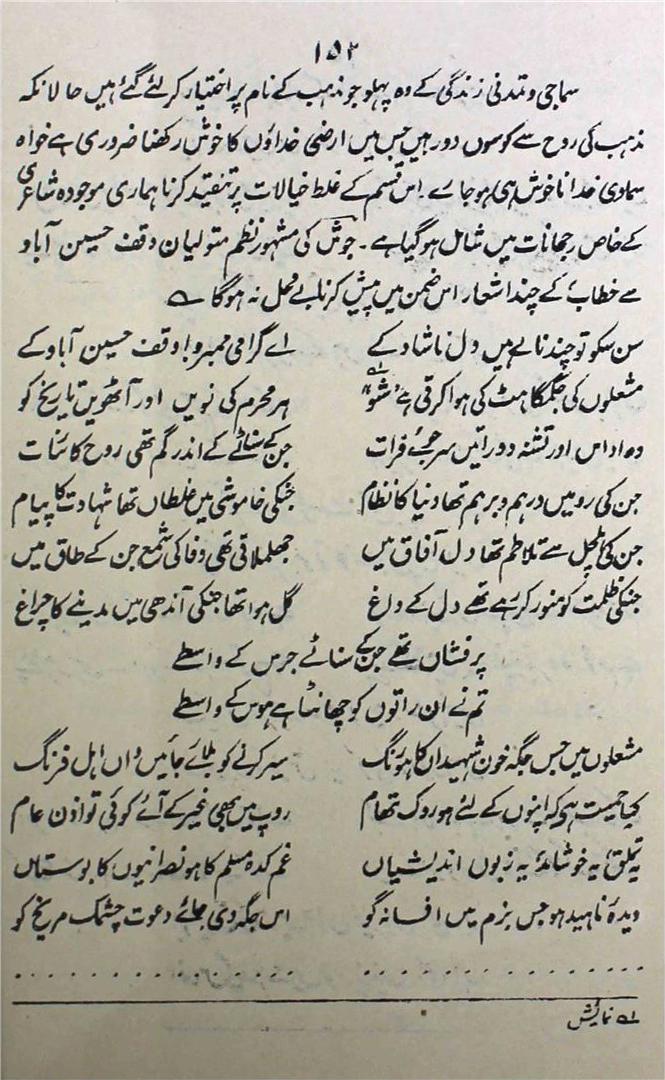 ۱۵۲
سماجی و تمدنی زندگی کے وہ پہلو جو مذہب کے نام پر اختیار کر لئے گئے ہیں حالانکہ
مذہب کی روح سے کوسوں دور ہیں جس میں ارضی خداؤں کا خوش رکھنا ضروری ہے خواہ
سماوی خدا ناخوش ہی ہو جائے۔ اس قسم کے غلط خیالات پر تنقید کرنا ہماری موجودہ شاعری
کے خاص رجحانات میں شامل ہو گیا ہے۔ جوش کی مشہور نظم متولیان وقف حسین آباد
سے خطاب کے چند اشعار اس ضمن میں پیش کرنا بے محل نہ ہوگا ؎
اے گرامی ممبرو! وقف حسین آباد کے سن سکو تو چند نالے ہیں دل ناشاد کے
ہر محرم کی نویں اور آٹھویں تاریخ کو مشعلوں کی جگمگاہٹ کی ہوا کرتی ہے "شو" ؎۱
جن کے سناٹے کے اندر گم تھی روح کائنات وہ اداس اور تشنہ دو راتیں سر جوئے فرات
جنکی خاموشی میں غلطاں تھا شہادت کا پیام جن کی رو میں درہم و برہم تھا دنیا کا نظام
جھلملاتی تھی وفا کی شمع جن کے طاق میں جن کی ہلچل سے تلاطم تھا دل آفاق میں
گل ہوا تھا جنکی آندھی میں مدینے کا چراغ جنکی ظلمت کو منور کر رہے تھے دل کے داغ
پر فشاں تھے جن کے سناٹے جرس کے واسطے
تم نے ان راتوں کو چھانٹا ہے ہوس کے واسطے
سیر کرنے کو بلائے جائیں واں اہل فرنگ مشعلوں میں جس جگہ خون شہیداں کا ہو رنگ
روپ میں بھی غیر کے آئے کوئی تو اذن عام کیا حمیت ہے کہ اپنوں کے لئے ہو روک تھام
غم کدہ مسلم کا ہو نصرانیوں کا بوستاں یہ تملق یہ خوشامد یہ زبوں اندیشیاں
اس جگہ دی جائے دعوت چشمک مریخ کو دیدۂ ناہید ہو جس بزم میں افسانہ گو
. . . . . . . . . . . . . . . . . . . . . . . . . . . .
؎۱ نمایش